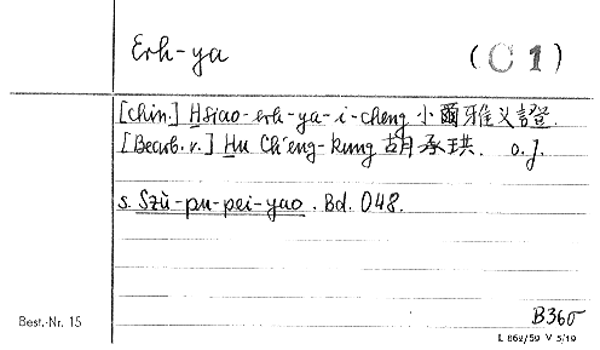 Erh-ya (C 1)
[Chin.] Hsiao-erh-ya-i-cheng 小爾雅义證.
[Bearb. v.] Hu Ch'eng-kung 胡承珙. o.J.
s. Szù-pu-pei-yao. Bd. 048.
B365
Best.-Nr. 15
L 862/59 V 5/19